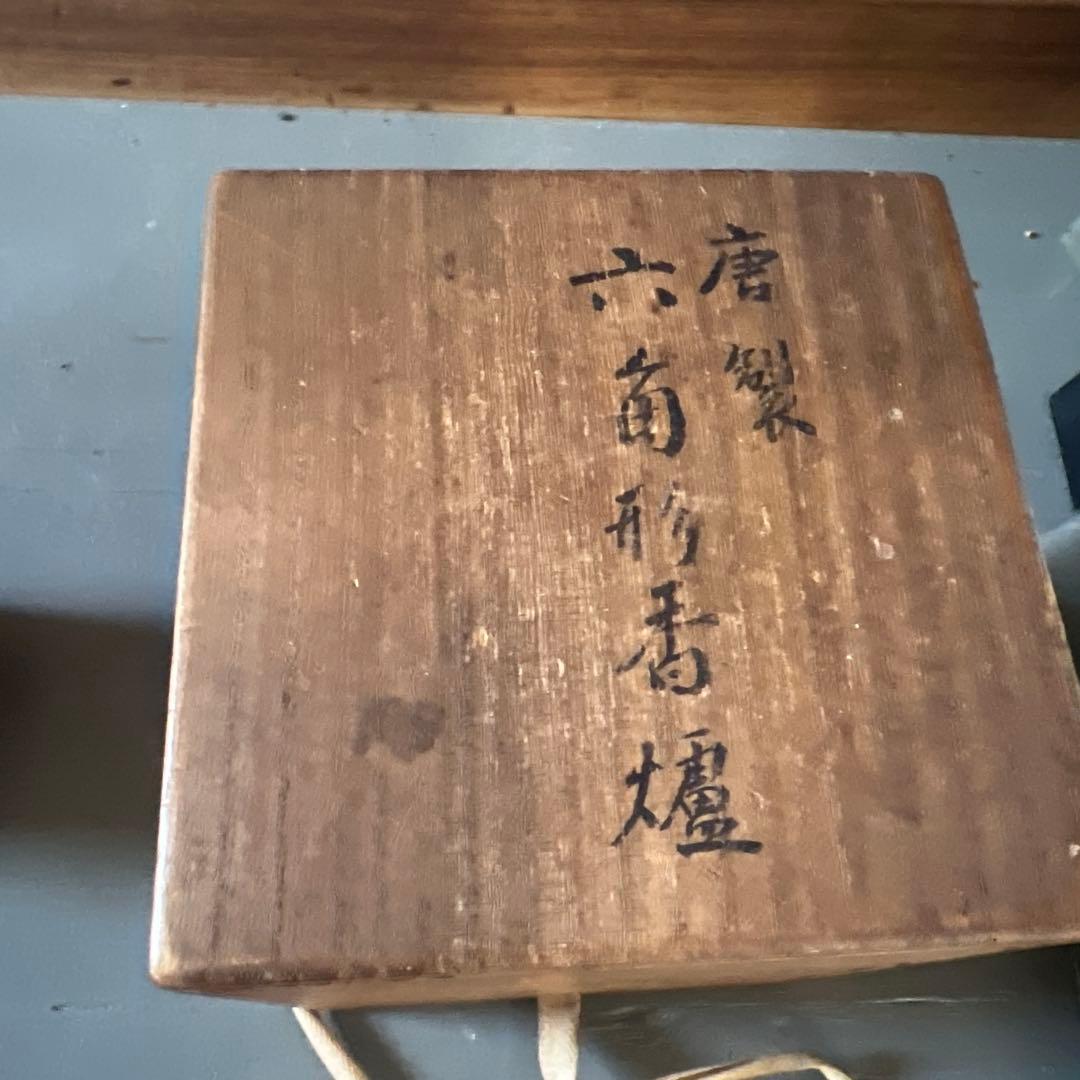 唐製
六角形香爐